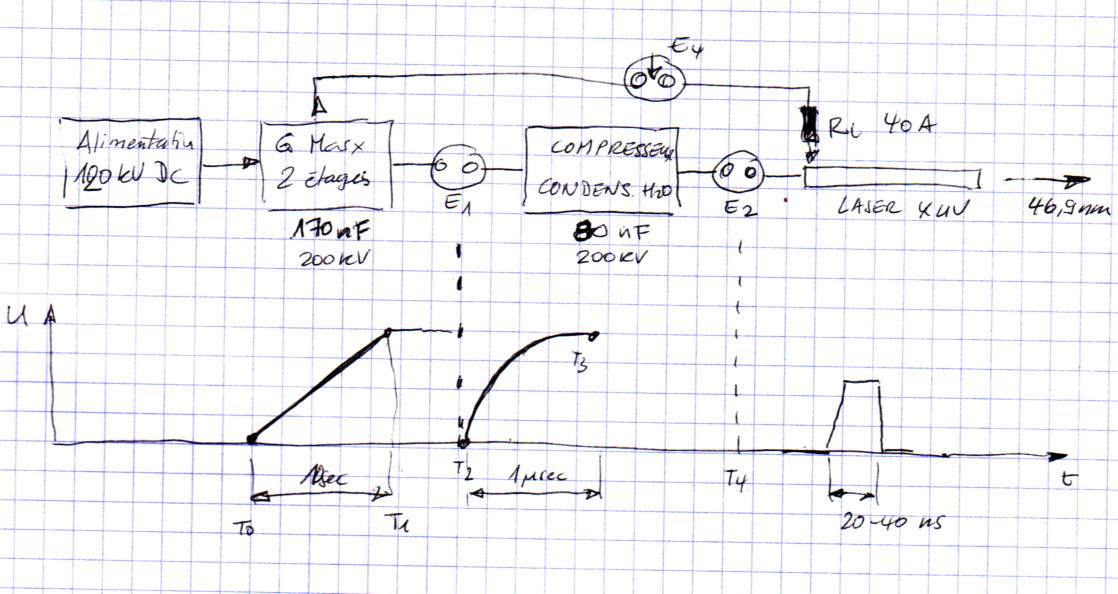 E4
Alimentation
120 kV DC
G Marx
2 étages
170 nF
200 kV
E1
COMPRESSEUR
CONDENS. H2O
80 nF
200 kV
E2
RL 40 A
LASER XUV
46,9 nm
U
T3
T2
1 µsec
T0
T1
T4
20-40 ns
t